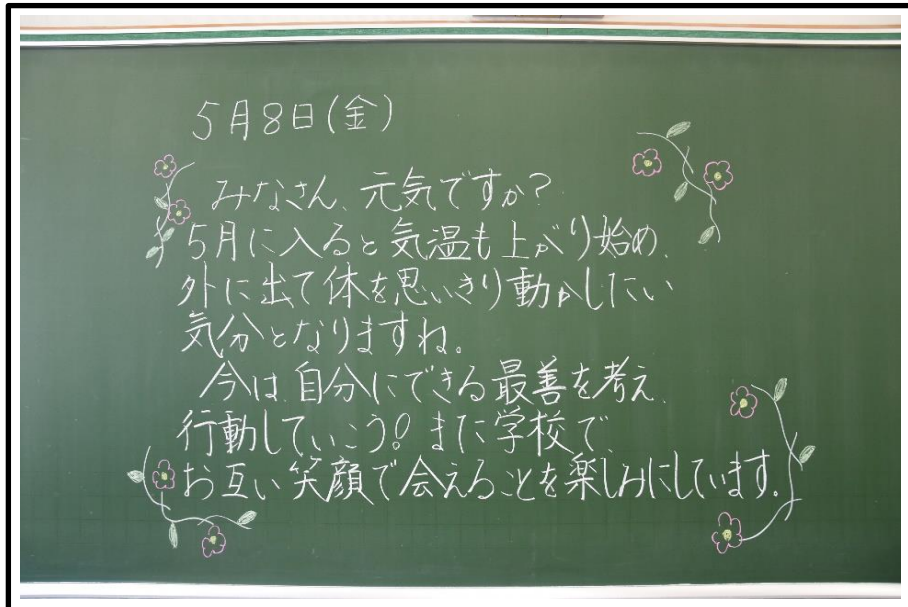 5月8日(金)
みなさん、元気ですか?
5月に入ると気温も上がり始め、
外に出て体を思いきり動かしたい
気分となりますね。
今は、自分にできる最善を考え、
行動していこう!また学校で、
お互い笑顔で会えることを楽しみにしています。